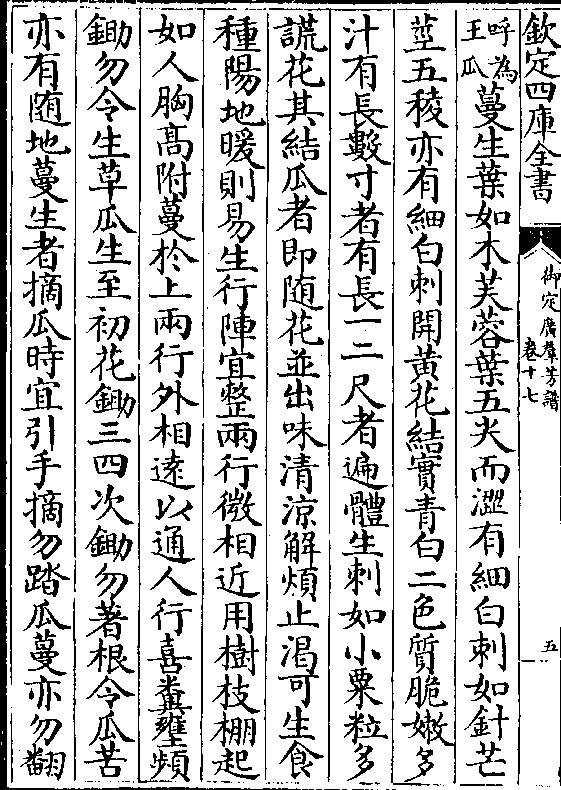 欽定四庫全書
御定廣羣芳譜
卷十七
五
呼為
王瓜
蔓生葉如木芙蓉葉五尖而澀有細白刺如針芒
莖五稜亦有細白刺開黄花結實青白二色質脆嫩多
汁有長數寸者有長一二尺者遍體生刺如小粟粒多
謊花其結瓜者即随花並出味清涼解煩止渴可生食
種陽地暖則易生行陣宜整兩行微相近用樹枝棚起
如人胸高附蔓於上兩行外相逺以通人行喜糞壅頻
鋤勿令生草瓜生至初花鋤三四次鋤勿著根令瓜苦
亦有随地蔓生者摘瓜時宜引手摘勿踏瓜蔓亦勿翻